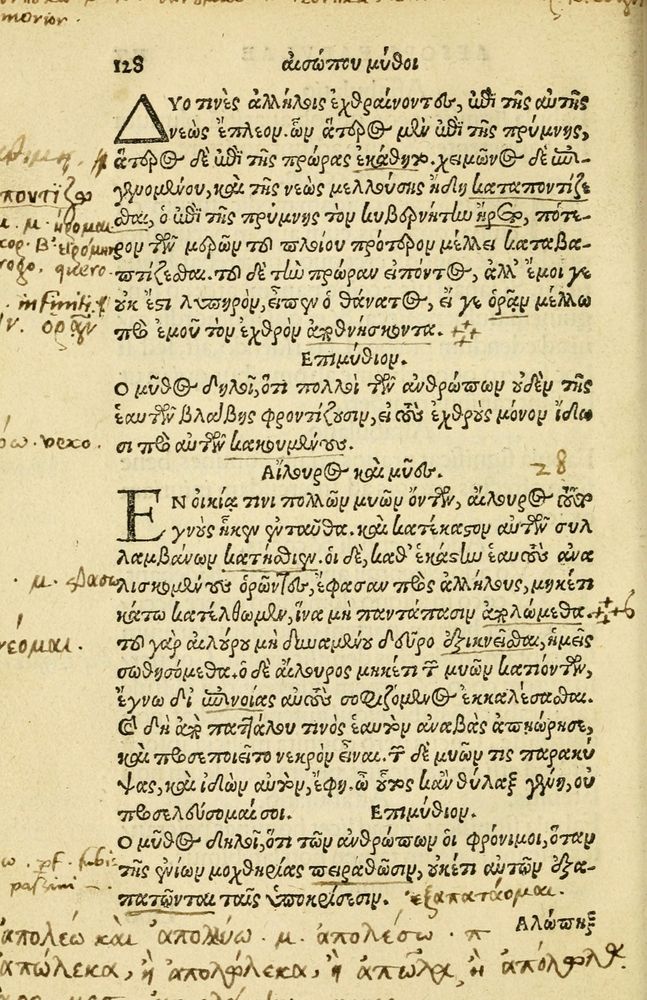 morior.
128 αἰσώπου μύθοι
ΔΥΟ τινὲς ἀλλήλοις ἐχθραίνοντες, ἐπὶ τῆς αὐτῆς
νεὼς ἔπλεον. ὧν ἅτερος μὲν ἐπὶ τῆς πρύμνης,
ἅτερος δὲ ἐπὶ τῆς πρώρας ἐκάθητο. χειμῶνος δὲ ἐπι-
γενομένου, καὶ τῆς νεὼς μελλούσης ἤδη καταποντίζε
σθαι, ὁ ἐπὶ τῆς πρύμνης τὸν κυβερνήτην ἤρετο, πότε-
ρον τῶν μερῶν τοῦ πλοίου πρότερον μέλλει καταβα-
πτίζεσθαι. τοῦ δὲ τὴν πρῶραν εἰπόντος, ἀλλ' ἔμοι γε
οὐκ ἔστι λυπηρὸν, εἶπεν ὁ θάνατος, εἴ γε ὁρᾷν μέλλω
πρὸ ἐμοῦ τὸν ἐχθρὸν ἀποθνήσκοντα.
Επιμύθιον.
Ο μῦθος δηλοῖ, ὅτι πολλοὶ τῶν ἀνθρώπων οὐδὲν τῆς
ἑαυτῶν βλάβης φροντίζουσιν, εἰ τοὺς ἐχθροὺς μόνον ἴδω
σι πρὸ αὐτῶν κακουμένους.
Αἴλουρος καὶ μῦες. 28
ΕΝ οἰκίᾳ τινι πολλῶν μυῶν ὄντων, αἴλουρος τοῦτο
γνοὺς ἧκεν ἐνταῦθα. καὶ κατέκαστον αὐτῶν συλ
λαμβάνων κατήσθιεν. οἱ δὲ, καθ' ἑκάστην ἑαυτοὺς ἀνα
λισκομένους ὁρῶντες, ἔφασαν πρὸς ἀλλήλους, μηκέτι
κάτω κατέλθωμεν, ἵνα μὴ παντάπασιν ἀπολώμεθα.
τοῦ γὰρ αἰλούρου μὴ δυναμένου δεῦρο ἐξικνεῖσθαι, ἡμεῖς
σωθησόμεθα. ὁ δὲ αἴλουρος μηκέτι τῶν μυῶν κατιόντων,
ἔγνω δι' ἐπινοίας αὐτοὺς σοφιζόμενος ἐκκαλέσασθαι.
καὶ δὴ ἀπὸ παττάλου τινὸς ἑαυτὸν ἀναβὰς ἀπῃώρησε,
καὶ προσεποιεῖτο νεκρὸν εἶναι. τῶν δὲ μυῶν τις παρακύ
ψας, καὶ ἰδὼν αὐτὸν, ἔφη. ὦ οὗτος κἂν θύλαξ γένῃ, οὐ
προσελεύσομαί σοι. Επιμύθιον.
Ο μῦθος δηλοῖ, ὅτι τῶν ἀνθρώπων οἱ φρόνιμοι, ὅταν
τῆς ἐνίων μοχθηρίας πειραθῶσιν, οὐκέτι αὐτῶν ἐξα-
πατῶνται ταῖς ὑποκρίσεσιν. ἐξαπατάομαι.
Αλώπηξ
ἀπολέω καὶ ἀπολλύω. μ. ἀπολέσω. π
ἀπώλεκα,
quero.
infiniti.
neco.